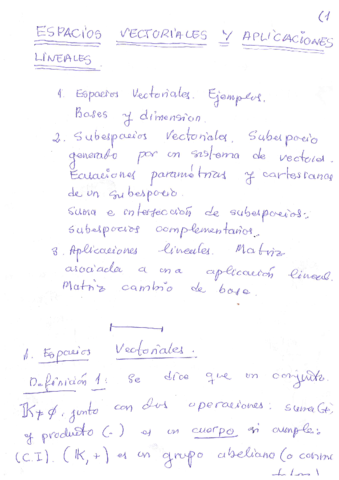 (1
ESPACIOS VECTORIALES Y APLICACIONES
LINEALES.
1. Espacios Vectoriales. Ejemplos.
Bases y dimension.
2. Subespacios Vectoriales. Subespacio
generado por un sistema de vectores.
Ecuaciones paramétricas y cartesianas
de un subespacio.
Suma e intersección de subespacios.
Subespacios complementarios.
3. Aplicaciones lineales. Matriz
asociada a una aplicación lineal.
Matriz cambio de base.
1. Espacios Vectoriales.
Definición 1: Se dice que un conjunto
K≠∅, junto con dos operaciones: suma (+)
y producto (·) es un cuerpo si cumple:
(C.1). (K,+) es un grupo abeliano (o conmu